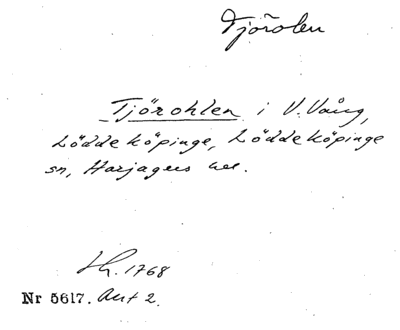 Tjörolen
Tjörohlen i V. Vång,
Löddeköpinge, Löddeköpinge
sn, Harjagers hd.
Lh. 1768
Nr 5617. Akt 2.